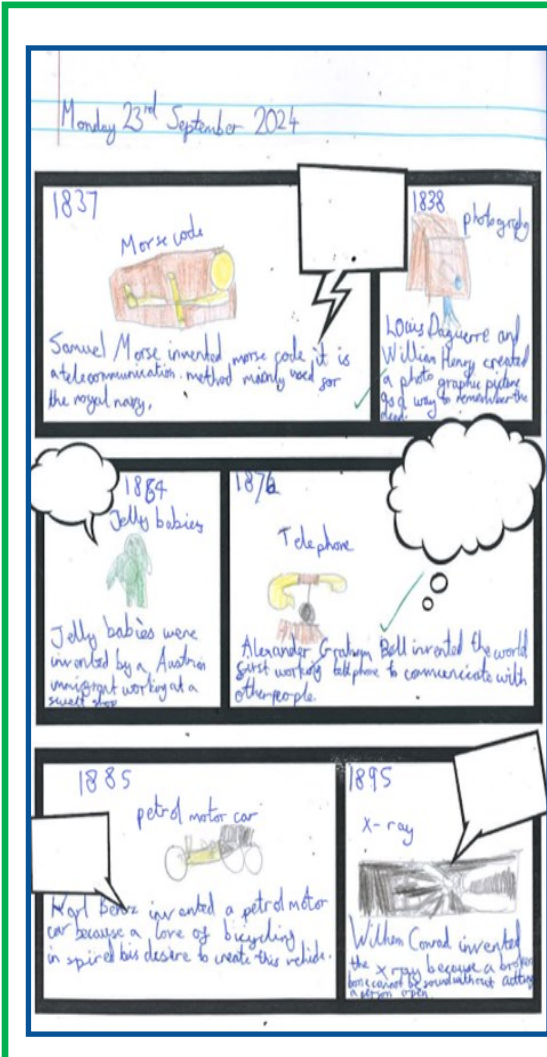 Monday 23rd September 2024
1837
Morse code
Samuel Morse invented morse code it is
a telecommunication method mainly used for
the royal navy,
1838
photography
Louis Daguerre and
William Henry created
a photo graphic picture
as a way to remember the
dead.
1864
Jelly babies
Jelly babies were
invented by a Austrian
immigrant working at a
sweet shop
1876
Telephone
Alexander Graham Bell invented the world
first working telephone to communicate with
other people.
1885
petrol motor car
Karl Benz invented a petrol motor
car because a love of bicycling
in spired his desire to create this vehicle.
1895
x-ray
William Conrad invented
the x ray because a broken
bone cannot be found without cutting
a person open.